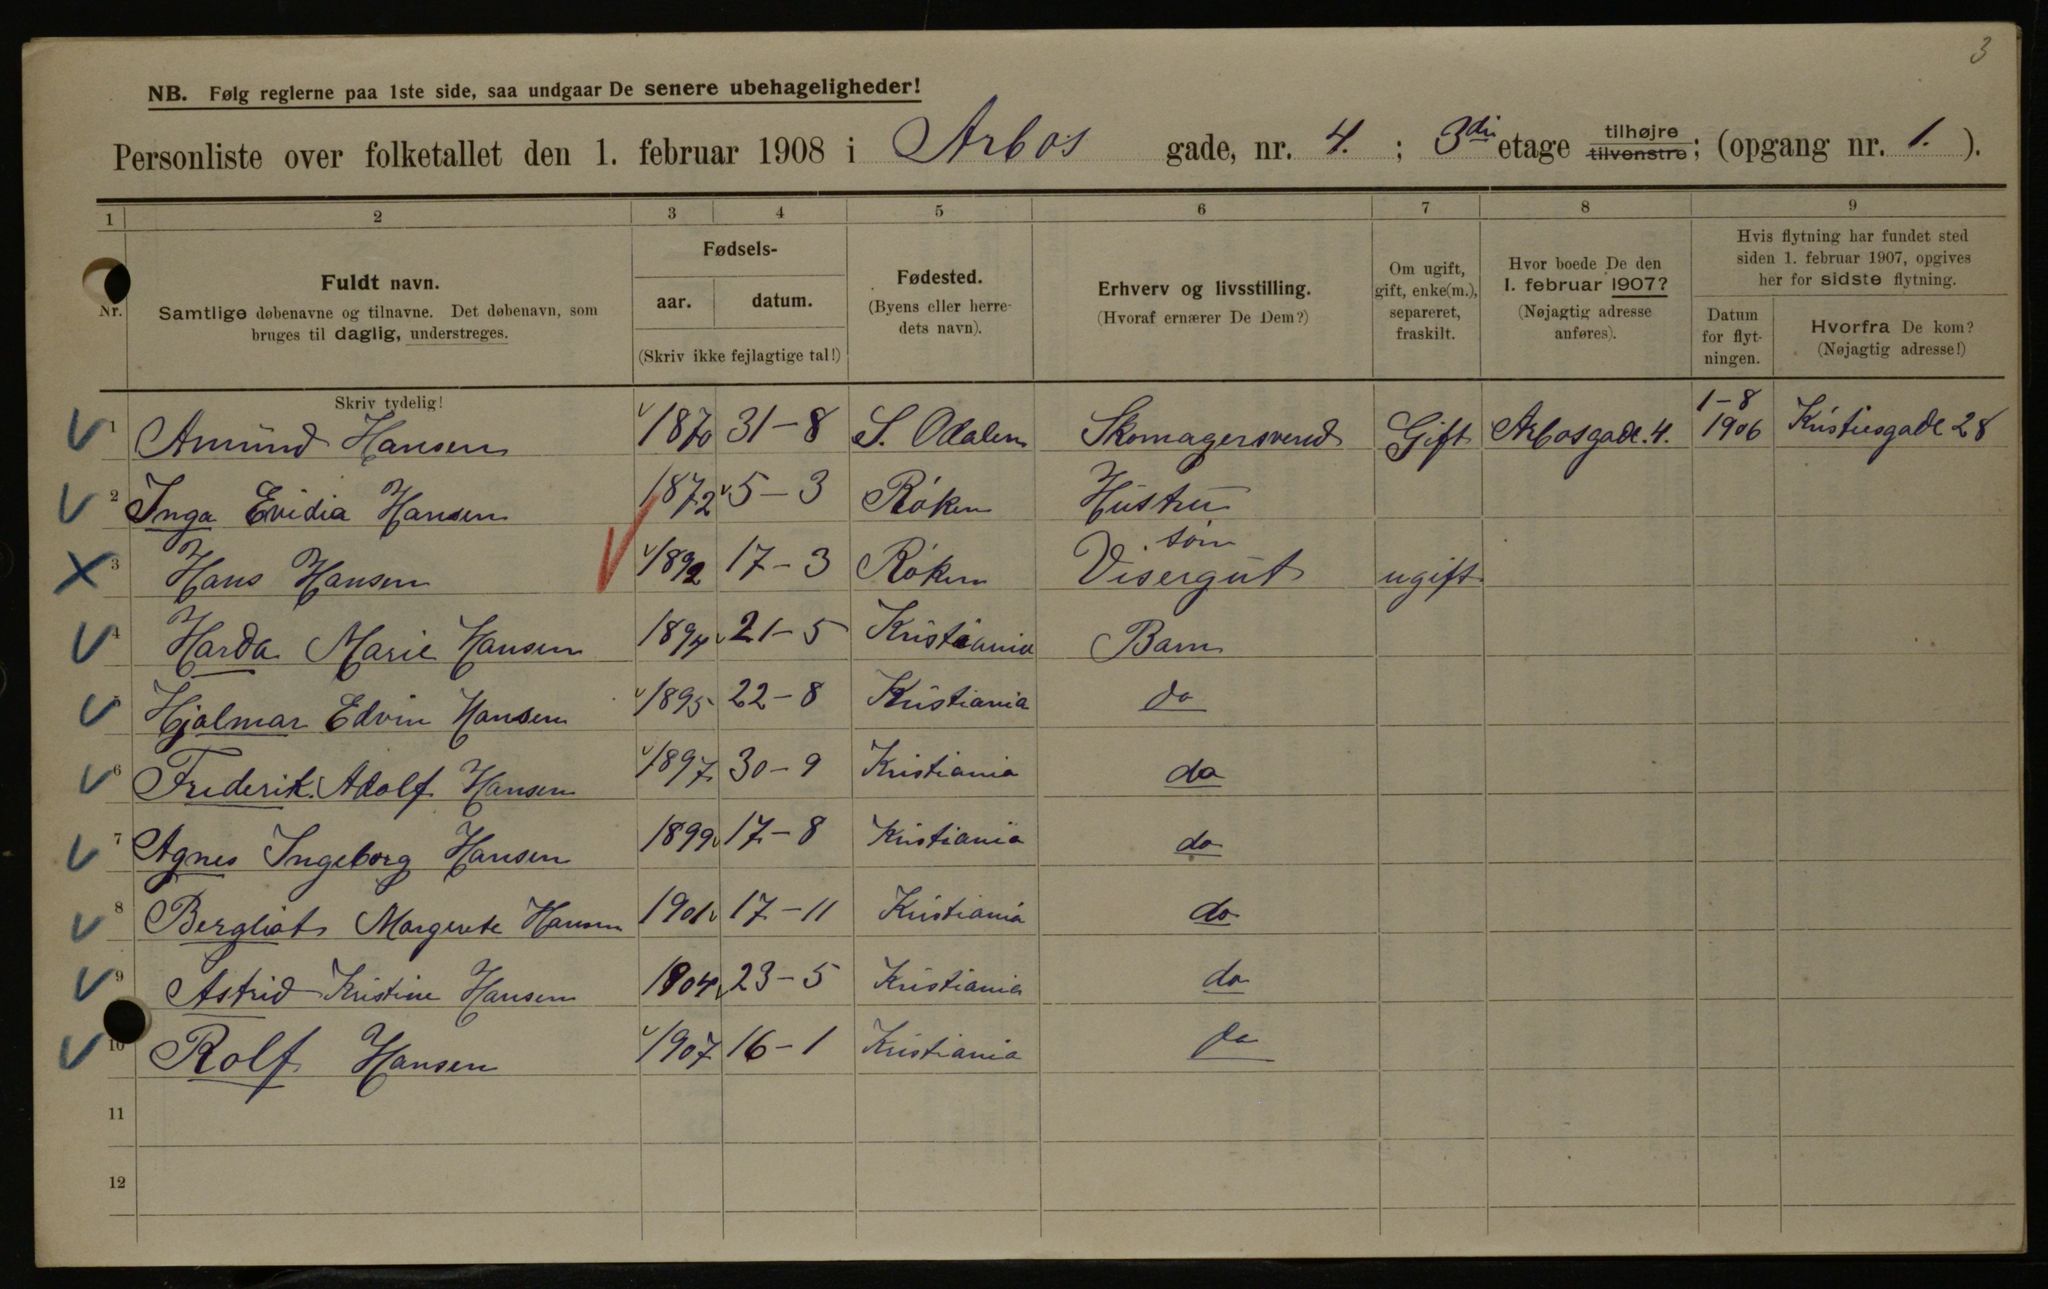 3
NB. Følg reglerne paa 1ste side, saa undgaar De senere ubehageligheder!
Personliste over folketallet den 1. februar 1908 i Arbos gade, nr. 4. ; 3die etage tilhøjre tilvenstre; (opgang nr. 1. ).
1 2 3 4 5 6 7 8 9
Nr.
Fuldt navn.
Samtlige døbenavne og tilnavne. Det døbenavn, som
bruges til daglig, understreges.
Skriv tydelig!
Fødsels-
aar. datum.
(Skriv ikke fejlagtige tal!)
Fødested.
(Byens eller herre-
dets navn).
Erhverv og livsstilling.
(Hvoraf ernærer De Dem?)
Om ugift,
gift, enke(m.),
separeret,
fraskilt.
Hvor boede De den
1. februar 1907?
(Nøjagtig adresse
anføres).
Hvis flytning har fundet sted
siden 1. februar 1907, opgives
her for sidste flytning.
Datum
for flyt-
ningen.
Hvorfra De kom?
(Nøjagtig adresse!)
1 Amund Hansen 1870 31-8 S. Odalen Skomagersvend Gift Arbosgade. 4. 1-8 1906 Kristiesgade 28
2 Inga Evidia Hansen 1872 5-3 Røken Hustru
3 Hans Hansen 1892 17-3 Røken søn Visergut ugift
4 Harda Marie Hansen 1894 21-5 Kristiania Barn
5 Hjalmar Edvin Hansen 1895 22-8 Kristiania do
6 Frederik Adolf Hansen 1897 30-9 Kristiania do
7 Agnes Ingeborg Hansen 1899 17-8 Kristiania do
8 Bergliot Margrete Hansen 1901 17-11 Kristiania do
9 Astrid Kristine Hansen 1904 23-5 Kristiania do
10 Rolf Hansen 1907 16-1 Kristiania do
11
12